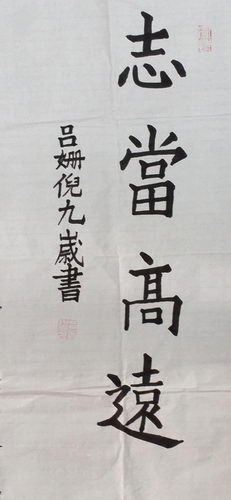 志當高遠
吕姗倪九歲書